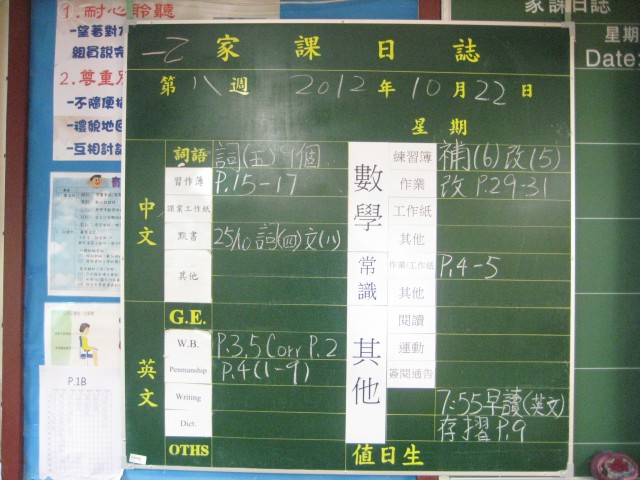 1.耐心聆聽
-望著對
組員說
2.尊重
-不隨便
-禮貌地
-互相討
P.1B
一乙 家課日誌
第八週 2012年10月22日
星期
中文
詞語 詞(五) 9個
習作簿 P.15-17
課業工作紙
默書 25/10 詞(四)文(八)
其他
英文
G.E.
W.B. P.3,5 Corr P.2
Penmanship P.4(1-9)
Writing
Dict.
OTHS
數學
練習簿 補(6)改(5)
作業 改 P.29-31
工作紙
其他
常識
作業/工作紙 P.4-5
其他
其他
閱讀
運動
簽閱通告
7:55早讀(英文)
存摺P.9
值日生
家課日誌
星期
Date: